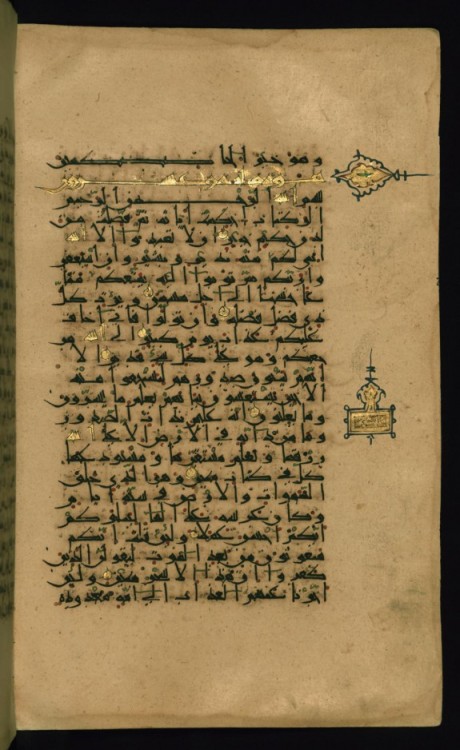 وهو خير الحاكمين
بسم الله الرحمن الرحيم
الر كتاب احكمت اياته ثم فصلت من
لدن حكيم خبير الا تعبدوا الا الله
انني لكم منه نذير وبشير وان استغفر
وا ربكم ثم توبوا اليه يمتعكم متا
عا حسنا الى اجل مسمى ويؤت كل
ذي فضل فضله وان تولوا فاني اخاف
عليكم عذاب يوم كبير الى الله مر
جعكم وهو على كل شيء قدير الا
انهم يثنون صدورهم ليستخفوا منه
الا حين يستغشون ثيابهم يعلم ما يسرون
وما يعلنون انه عليم بذات الصدور
وما من دابة في الارض الا على الله
رزقها ويعلم مستقرها ومستودعها
كل في كتاب مبين وهو الذي خلق
السموات والارض في ستة ايام
وكان عرشه على الماء ليبلوكم
ايكم احسن عملا ولئن قلت انكم
مبعوثون من بعد الموت ليقولن الذين
كفروا ان هذا الا سحر مبين ولئن
اخرنا عنهم العذاب الى امة معدودة